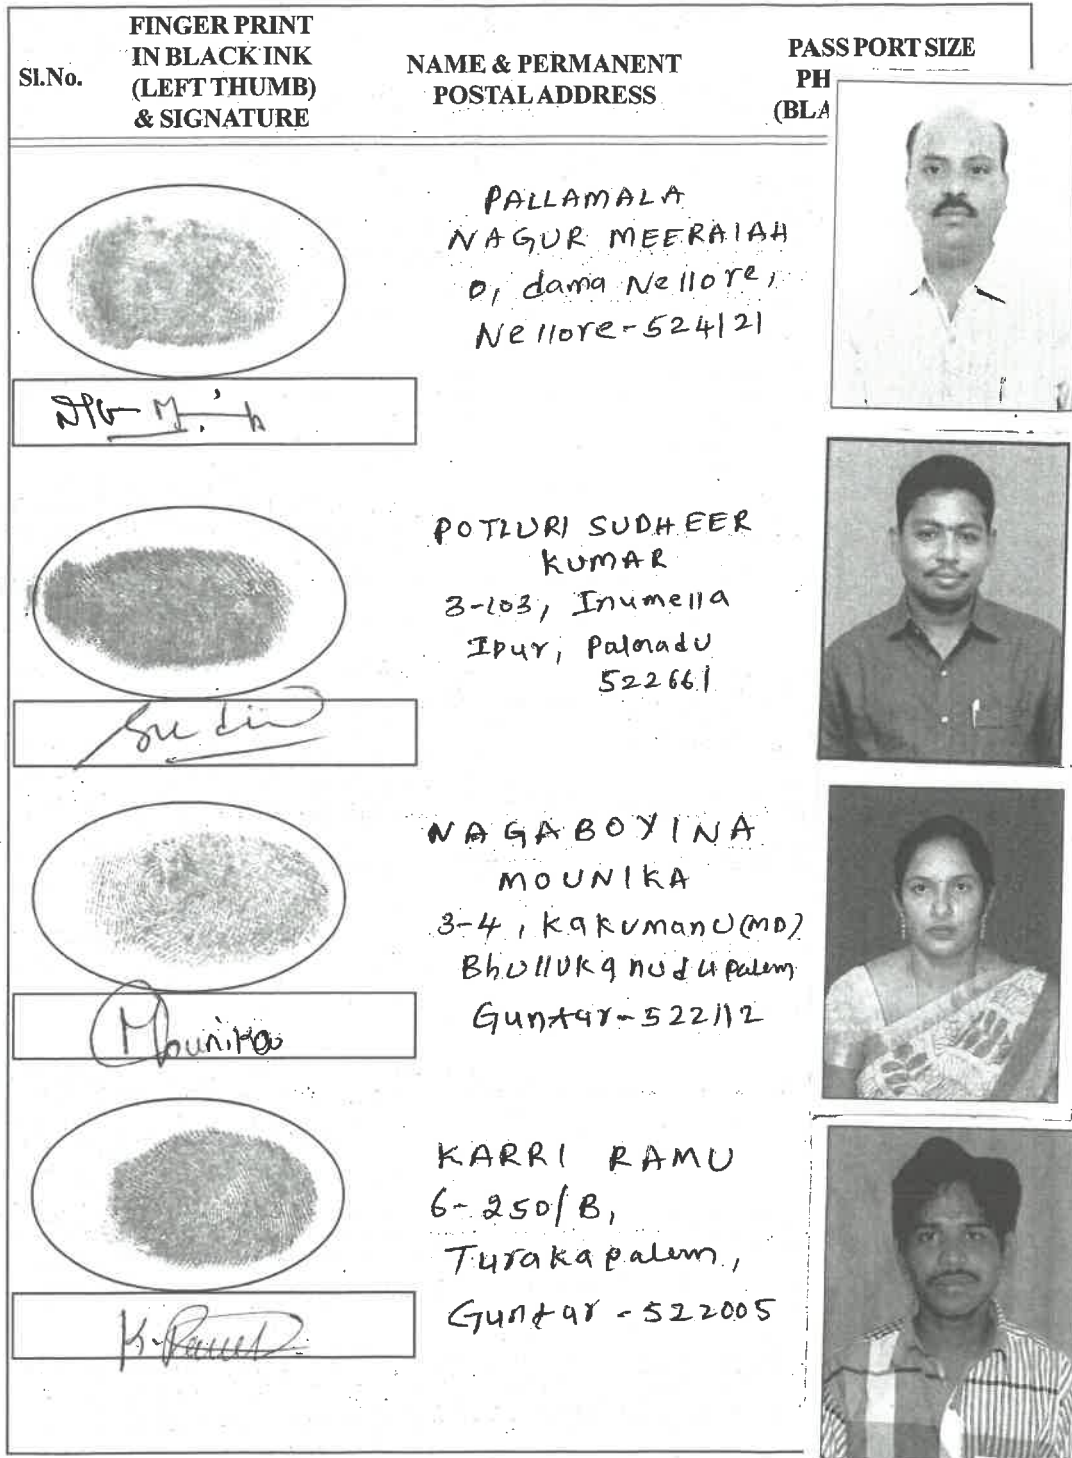 Sl.No.
FINGER PRINT
IN BLACK INK
(LEFT THUMB)
& SIGNATURE
NAME & PERMANENT
POSTAL ADDRESS
PASS PORT SIZE
PH
(BLA
PALLAMALA
NAGUR MEERAIAH
0, dama Nellore,
Nellore-524121
POTLURI SUDHEER
KUMAR
3-103, Inumella
Ipur, Palnadu
522661
NAGABOYINA
MOUNIKA
3-4, Kakumanu(MD)
Bhollukanudupalem
Guntur-522112
Mounika
KARRI RAMU
6-250/B,
Turakapalem,
Guntur-522005
K. Ramu